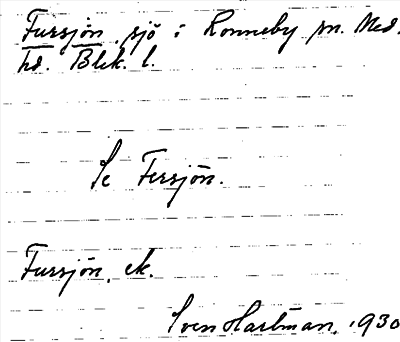 Fursjön, sjö i Ronneby sn. Med.
hd. Blek. l.
Se Fersjön.
Fursjön, ek.
Sven Hartman, 1930